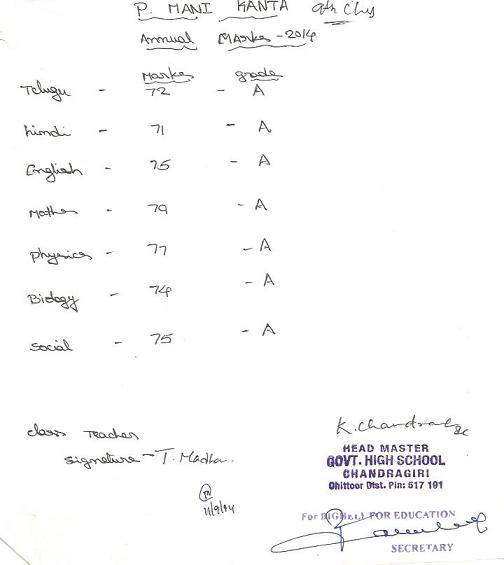 P. MANI KANTA 9th Class
Annual Marks - 2014
Marks grade
Telugu - 72 - A
hindi - 71 - A
English - 75 - A
Maths - 79 - A
physics - 77 - A
Biology - 74 - A
social - 75 - A
class Teacher
signature - T. Madha.
K. Chandra
HEAD MASTER
GOVT. HIGH SCHOOL
CHANDRAGIRI
Chittoor Dist. Pin: 517 101
11/9/14
For BIGHELP FOR EDUCATION
SECRETARY